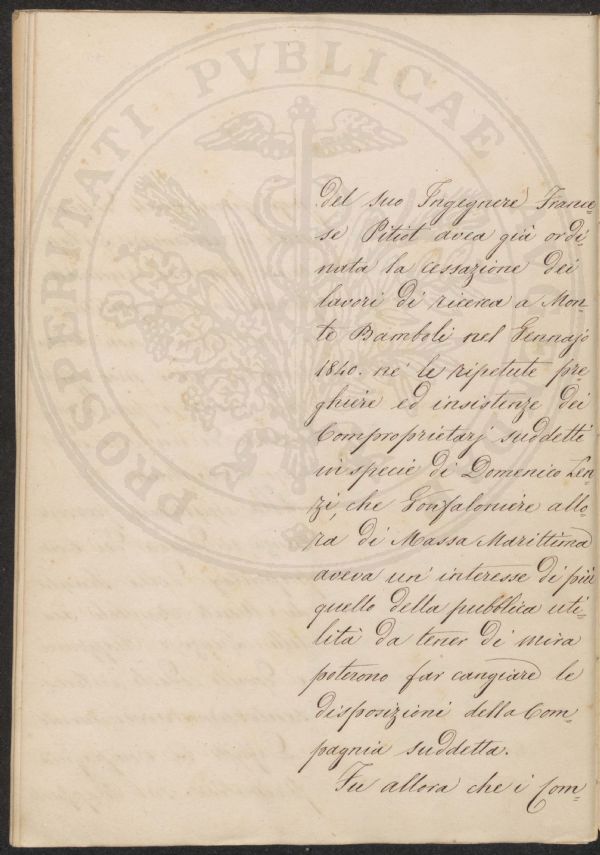 PROSPERITATI PVBLICAE
del suo Ingegnere France=
se Pitiot avea già ordi=
nata la cessazione dei
lavori di ricerca a Mon=
te Bamboli nel Gennajo
1840. nè le ripetute pre=
ghiere ed insistenze dei
Comproprietarj suddetti
in specie di Domenico Len=
zi, che Gonfaloniere allo=
ra di Massa Marittima
aveva un' interesse di più
quello della pubblica uti=
lità da tener di mira
poterono far cangiare le
disposizioni della Com=
pagnia suddetta.
Fu allora che i Com=